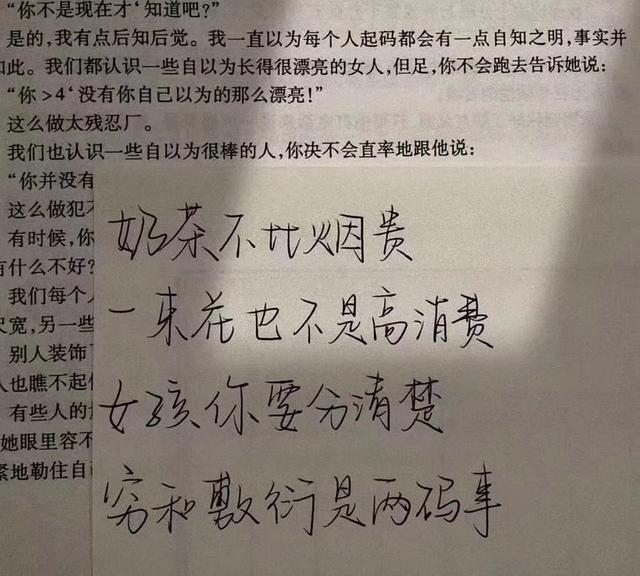 “你不是现在才‘知道吧?”
是的,我有点后知后觉。我一直以为每个人起码都会有一点自知之明,事实并
如此。我们都认识一些自以为长得很漂亮的女人,但足,你不会跑去告诉她说:
“你>4‘没有你自己以为的那么漂亮!”
这么做太残忍厂。
我们也认识一些自以为很棒的人,你决不会直率地跟他说:
“你并没有
这么做犯不
有时候,你
有什么不好?
我们每个人
尺宽,另一些
别人装饰
人也瞧不起
有些人的
她眼里容不
紧地勒住自
奶茶不比烟贵
一束花也不是高消费
女孩你要分清楚
穷和敷衍是两码事